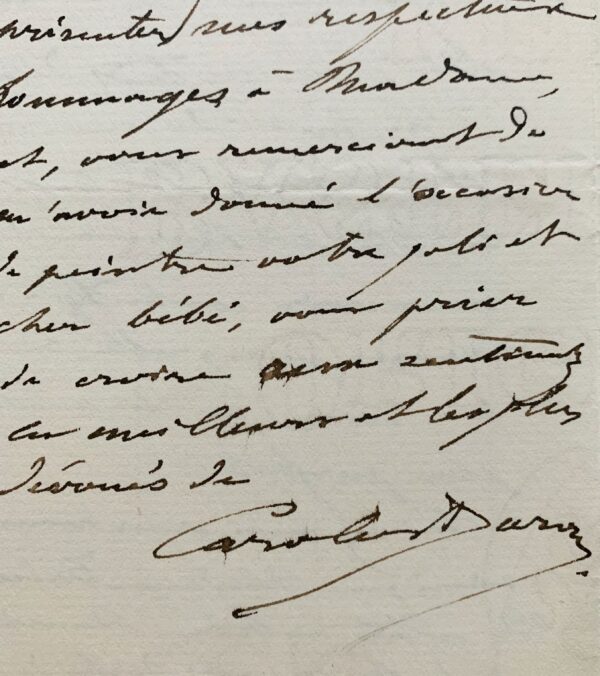 présenter mes respectueux
hommages à Madame,
et, vous remerciant de
m'avoir donné l'occasion
de peindre votre joli et
cher bébé, vous prier
de croire aux sentiments
les meilleurs et les plus
dévoués de
Carolus Duran